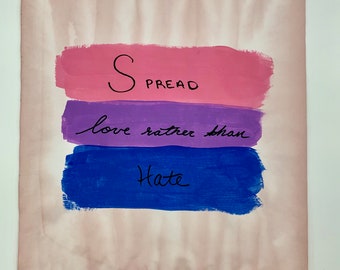 Spread
love rather than
Hate